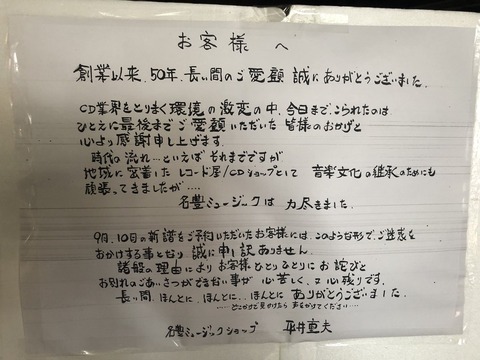 お客様へ
創業以来、50年、長い間のご愛顧誠にありがとうございました。
CD業界をとりまく環境の激変の中、今日まで、こられたのは
ひとえに最後までご愛顧いただいた皆様のおかげと
心より感謝申し上げます。
時代の流れ…といえばそれまでですが
地域に密着したレコード屋/CDショップとして 音楽文化の継承のためにも
頑張ってきましたが‥‥
名豊ミュージックは力尽きました。
9月、10月の新譜をご予約いただいたお客様には、このような形で、ご迷惑を
おかけする事となり誠に申し訳ありません。
諸般の理由によりお客様ひとりひとりにお詫びと
お別れのごあいさつができない事が心苦しく、又心残りです。
長い間、ほんとに、ほんとに、ほんとにありがとうございました。
…どこかで見かけたら声をかけてください……
名豊ミュージックショップ 平井 夫